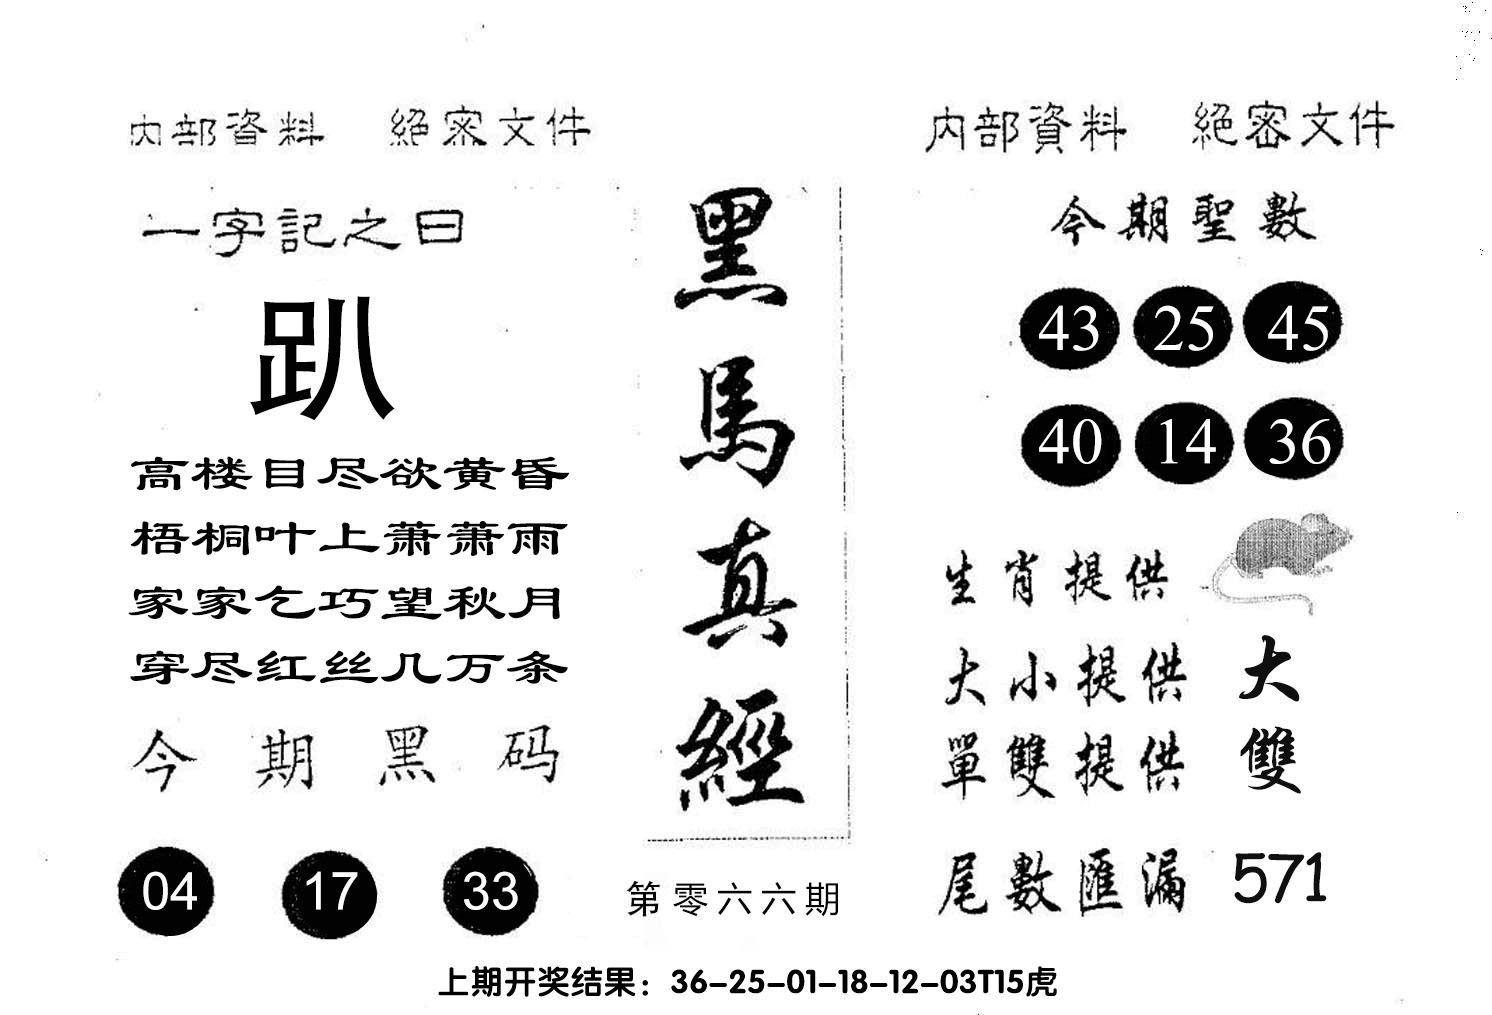 内部資料 絕密文件
一字記之曰
趴
高楼目尽欲黄昏
梧桐叶上萧萧雨
家家乞巧望秋月
穿尽红丝几万条
今期黑码
04 17 33
黑馬真經
第零六六期
内部資料 絕密文件
今期聖數
43 25 45
40 14 36
生肖提供
大小提供 大
單雙提供 雙
尾數匯漏 571
上期开奖结果：36-25-01-18-12-03T15虎